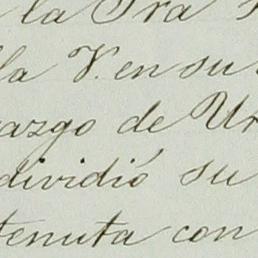 la Sra
la V. en su
azgo de Ur
dividió su
tenuta con